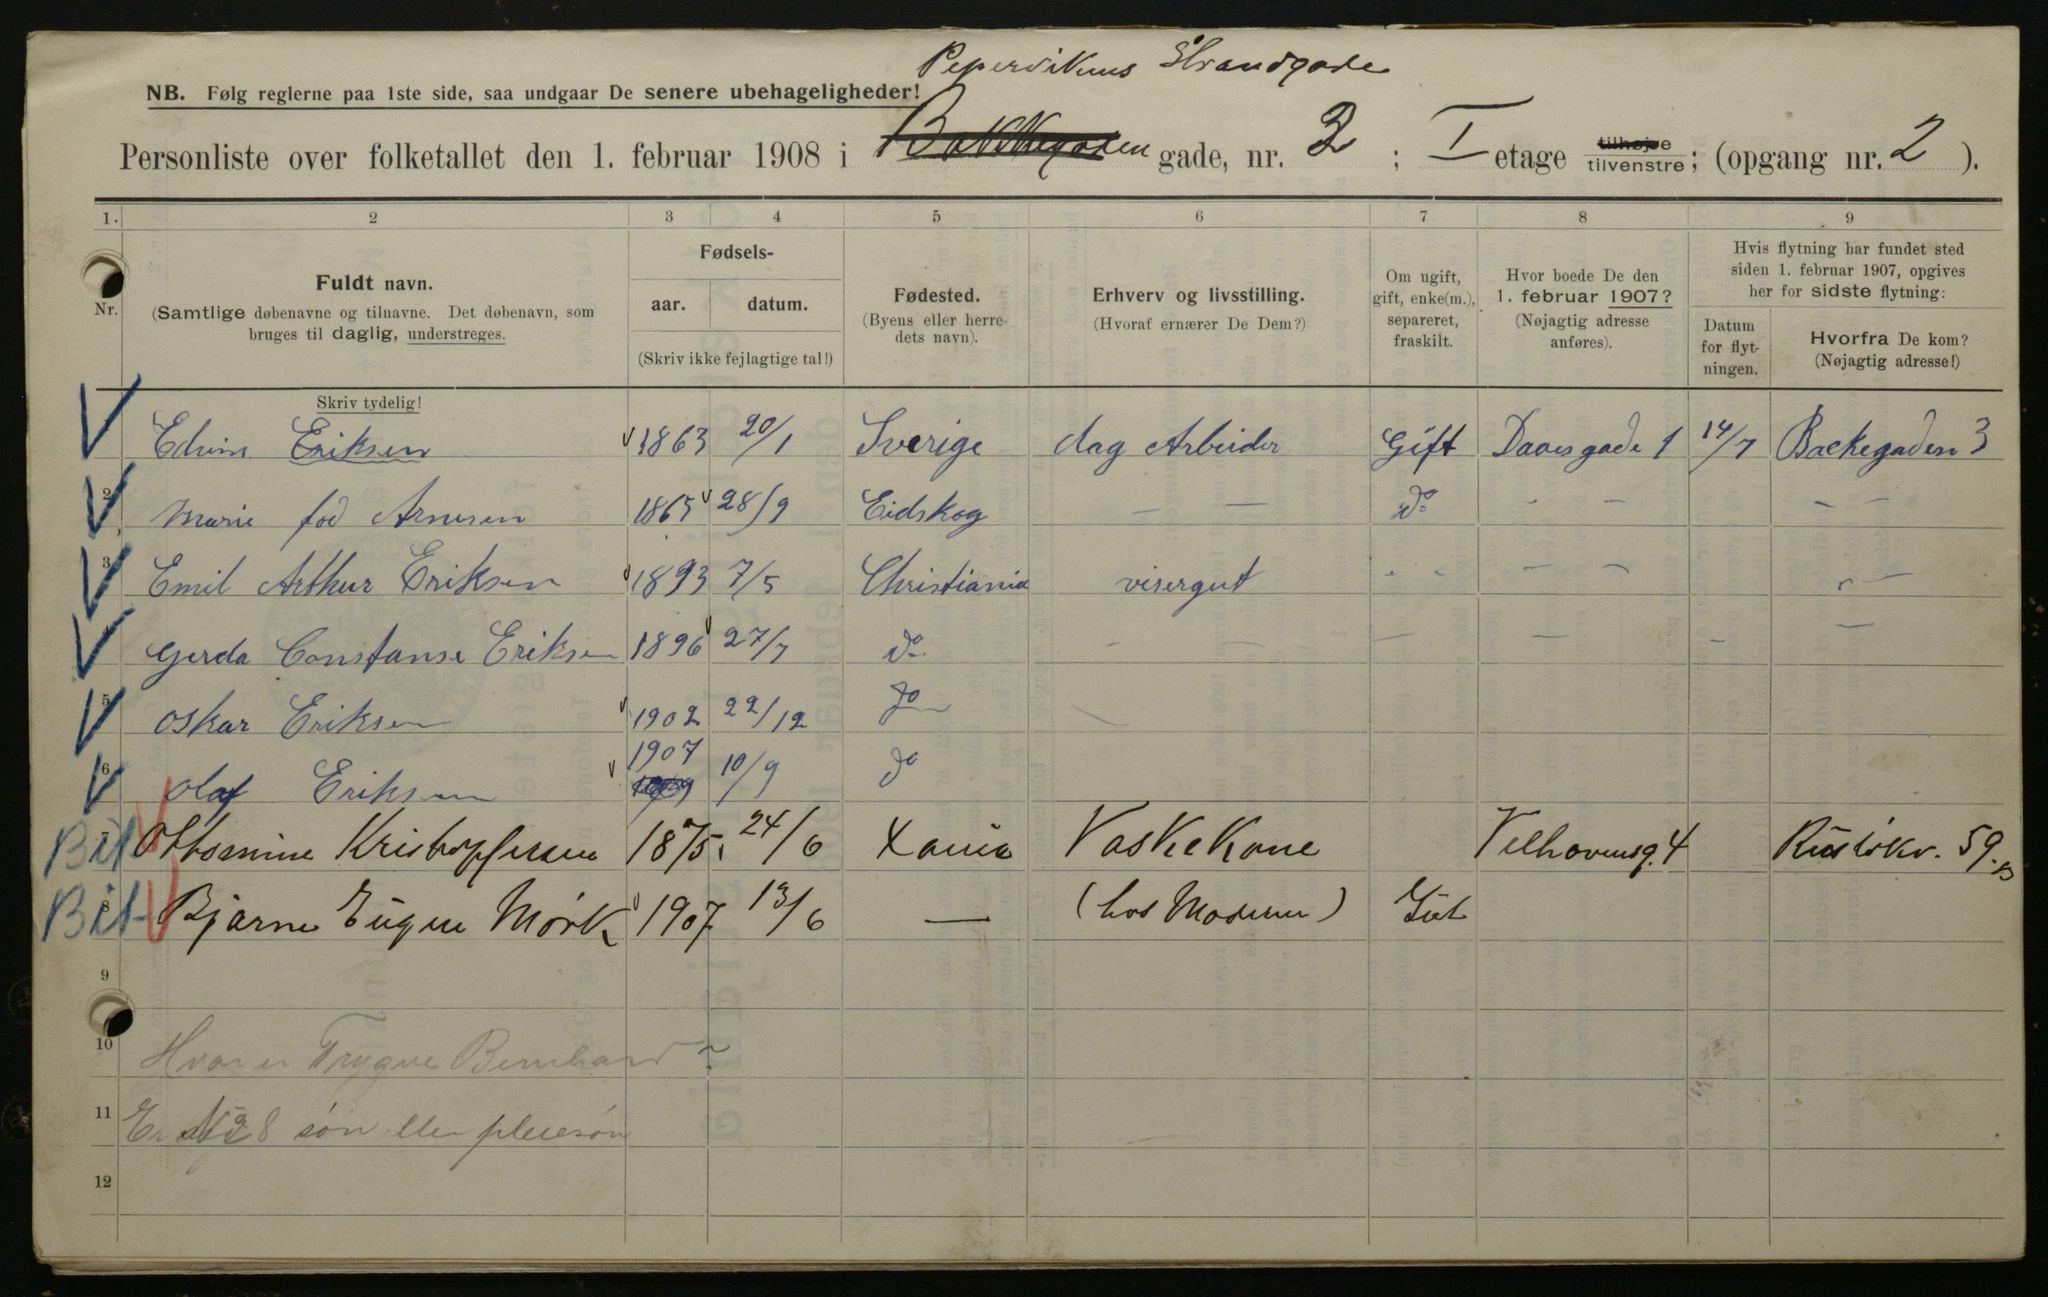 Pepervikens Strandgade
NB. Følg reglerne paa 1ste side, saa undgaar De senere ubehageligheder!
Personliste over folketallet den 1. februar 1908 i Bakkegaden gade, nr. 2 ; I etage tilhøjre tilvenstre; (opgang nr. 2 ).
1. 2 3 4 5 6 7 8 9
Nr.
Fuldt navn.
(Samtlige døbenavne og tilnavne. Det døbenavn, som
bruges til daglig, understreges.
Skriv tydelig!
Fødsels-
aar. datum.
(Skriv ikke fejlagtige tal!)
Fødested.
(Byens eller herre-
dets navn).
Erhverv og livsstilling.
(Hvoraf ernærer De Dem?)
Om ugift,
gift, enke(m.),
separeret,
fraskilt.
Hvor boede De den
1. februar 1907?
(Nøjagtig adresse
anføres).
Hvis flytning har fundet sted
siden 1. februar 1907, opgives
her for sidste flytning:
Datum
for flyt-
ningen.
Hvorfra De kom?
(Nøjagtig adresse!)
Edvin Eriksen 1863 20/1 Sverige dag Arbeider Gift Daaesgade 1 14/7 Backegaden 3
2 Marie fød Arnesen 1865 28/9 Eidskog — — do - - - -
3 Emil Arthur Eriksen 1893 7/5 Christiania visergut - - - - -
Gerda Constanse Eriksen 1896 27/7 do - - - - - -
5 Oskar Eriksen 1902 22/12 do
6 Olaf Eriksen 1907 10/9 do
Bit 7 Othomine Kristoffersen 1875 24/6 Xania Vaskekone Velhavensg. 4 Rusløkv. 59.B
Bit 8 Bjarne Eugen Mørk 1907 13/6 — (hos Moderen) Gut
9
10 Hvor er Trygve Bernhard ?
11 Er No 8 søn eller pleiesøn
12